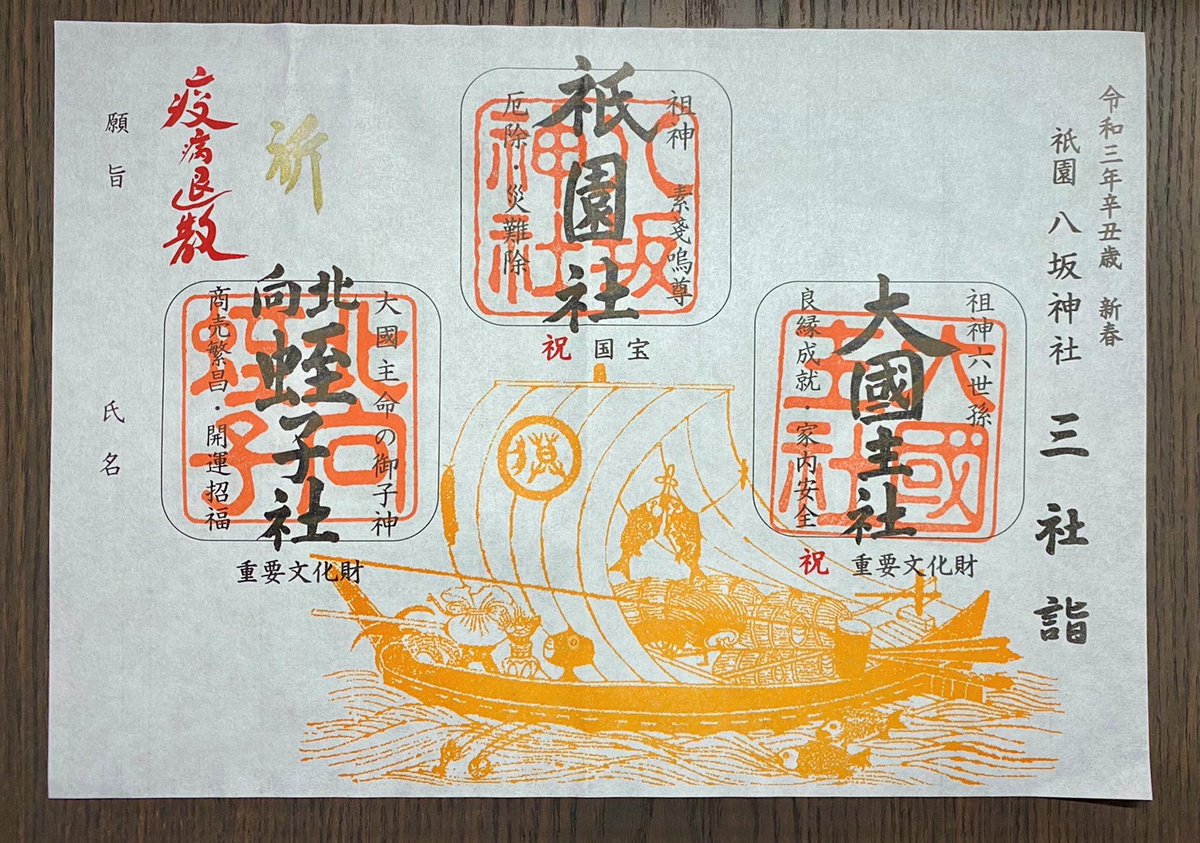 令和三年辛丑歳 新春
祇園 八坂神社 三社詣
祖神六世孫
大國主社
良縁成就・家内安全
大國主社
祝 重要文化財
祖神 素戔嗚尊
祇園社
厄除・災難除
八坂神社
祝 国宝
大國主命の御子神
北向蛭子社
商売繁昌・開運招福
北向蛭子
重要文化財
祈
疫病退散
願旨
氏名